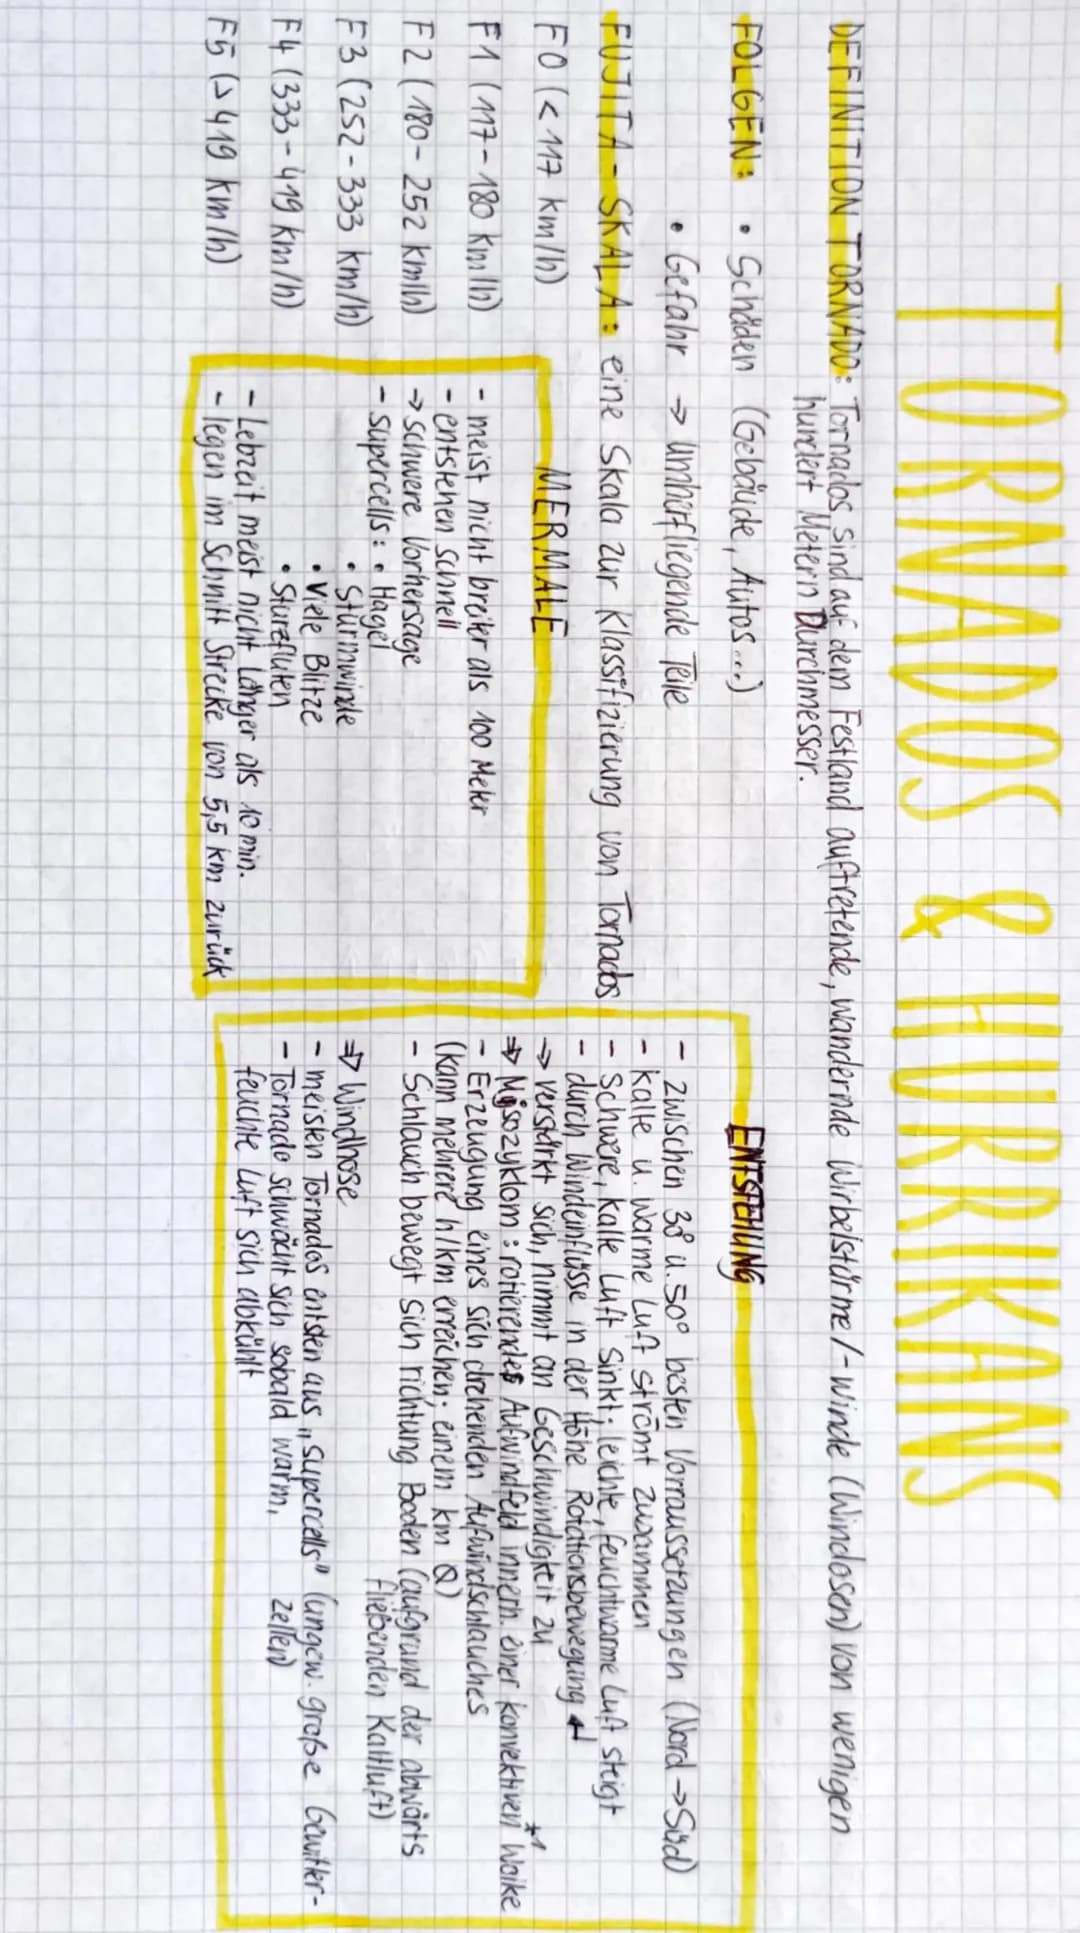 TORNADOS & HURRIKANS
DEFINITION TORNADO: Tornados sind auf dem Festland auftretende, wandernde Wirbelstürme/-winde (Windosen) von wenigen
hundert Metern Durchmesser.
FOLGEN: • Schäden (Gebäude, Autos...)
• Gefahr → Umhürfliegende Teile
FUJITA-SKALA: eine Skala zur Klassifizierung von Tornados
F0 (<117 km/h)
F1 (117-180 km/h)
F2 (180-252 km/h)
F3 (252-333 km/h)
F4 (333-419 km/h)
F5 (>419 km/h)
MERMALE
- meist nicht breiter als 100 Meter
- entstehen schnell
→ schwere Vorhersage
- supercells: • Hagel
• Sturmwinde
• Viele Blitze
• Sturzfluten
- Lebzeit meist nicht länger als 10 min.
- legen im Schnitt Strecke von 5,5 km zurück
ENTSTEHUNG
- zwischen 30° u. 50° besten Vorraussetzungen (Nord → Süd)
- kalte u. warme Luft strömt zusammen
- Schwere, kalte Luft sinkt; leichte, feuchtwarme Luft steigt
- durch Windeinflüsse in der Höhe Rotationsbewegung ↲
→ verstärkt sich, nimmt an Geschwindigkeit zu
⇒ Mesozyklom: rotierendes Aufwindfeld innerh. einer konvektiven Wolke *1
- Erzeugung eines sich drehenden Aufwindschlauches
(kann mehrere h/km erreichen; einem km Ø)
- Schlauch bewegt sich richtung Boden (aufgrund der abwärts
fließenden Kaltluft)
⇒ Windhose
- meisten Tornados entsten aus „supercells" (ungew. große Gewitter-
zellen)
- Tornado schwächt sich sobald warm,
feuchte Luft sich abkühlt